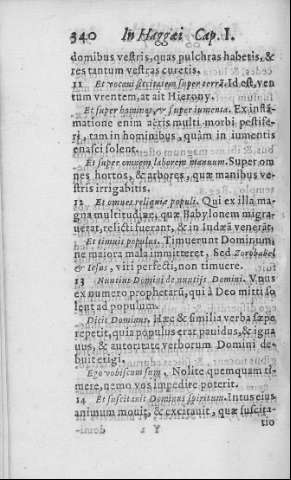 340 In Haggæi Cap. I.
domibus vestris, quas pulchras habetis, &
res tantum vestras curetis.
11 Et vocavi siccitatem super terrā. Id est, ven
tum vrentem, at ait Hierony.
Et super homines, & super iumenta. Ex inflā-
matione enim aëris multi morbi pestife-
ri, tam in hominibus, quàm in iumentis
enasci solent.
Et super omnem laborem manuum. Super om
nes hortos, & arbores, quæ manibus ve-
stris irrigabitis.
12 Et omnes reliquiæ populi. Qui ex illa ma-
gna multitudine, quæ Babylonem migra-
uerat, relicti fuerant, & in Iudæā venerāt.
Et timuit populus. Timuerunt Dominum,
ne maiora mala immitteret, Sed Zorobabel
& Iesus, viri perfecti, non timuere.
13 Nuntius Domini de nuntijs Domini. Vnus
ex numero prophetarū, qui à Deo mitti so
lent ad populum.
Dicit Dominus. Hæc & similia verba sæpe
repetit, quia populus erat pauidus, & igna
uus, & autoritate verborum Domini de-
buit erigi.
Ego vobiscum sum, Nolite quemquam ti-
mere, nemo vos impedire poterit.
14 Et suscitauit Dominus spiritum. Intus eius
animum mouit, & excitauit, quæ suscita-
Y 2 tio